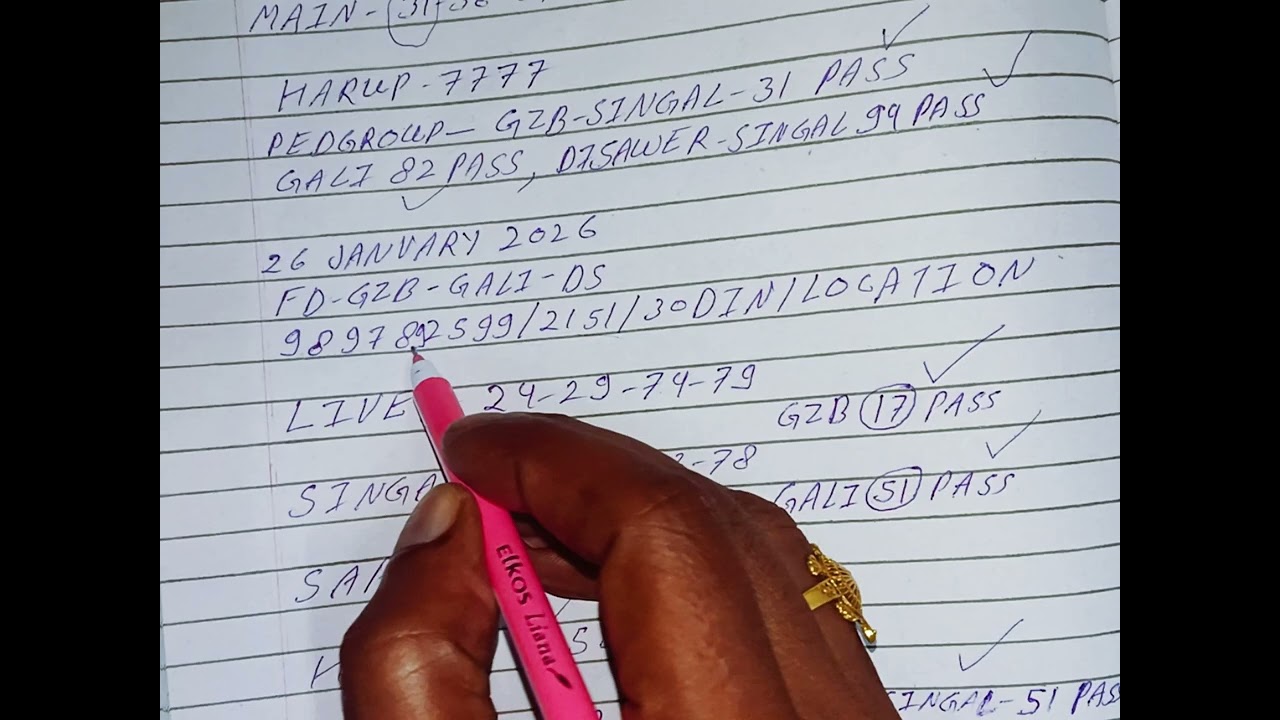 MAIN - 31
HARUP - 7777
PEDGROUP - GZB-SINGAL-31 PASS
GALI 82 PASS, DISAWER-SINGAL 99 PASS
26 JANUARY 2026
FD-GZB-GALI-DS
9897892599/2151/30DIN/LOCATION
LIVE 24-29-74-79
GZB 17 PASS
SINGA -78
GALI 51 PASS
SINGAL-51 PASS
Elkos Liana